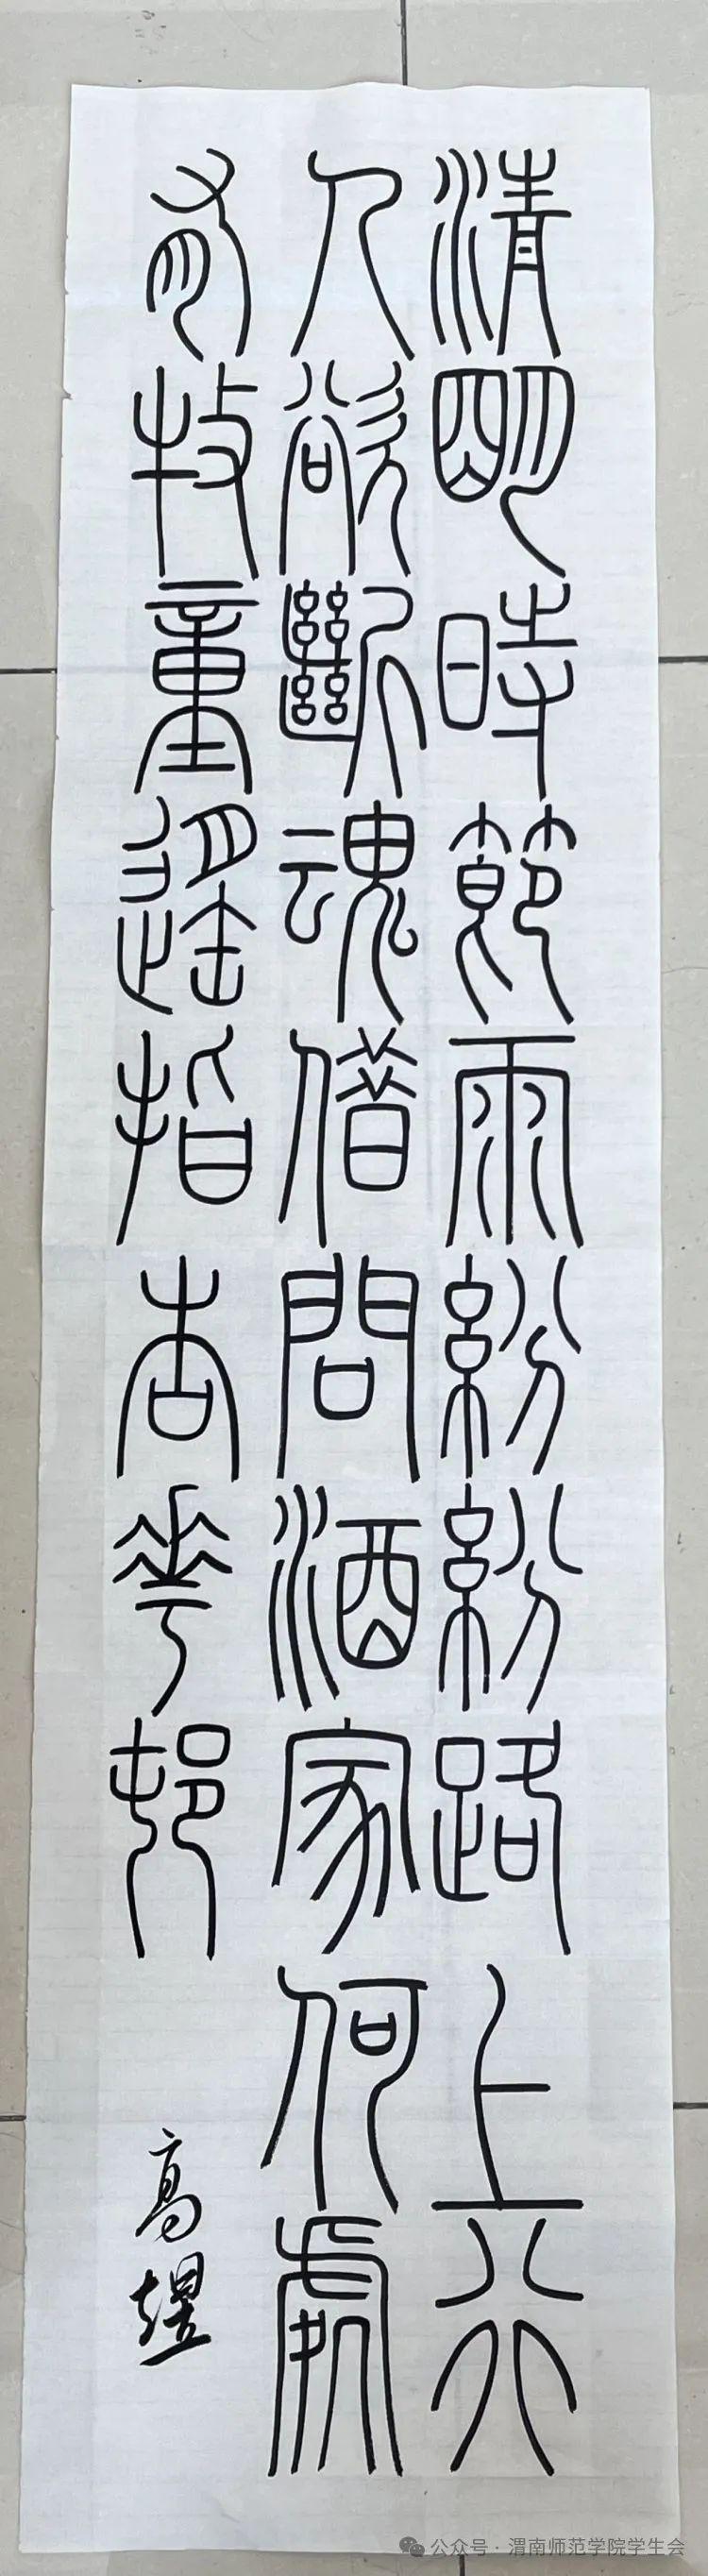 清明時節雨紛紛路上行
人欲斷魂借問酒家何處
有牧童遙指杏花邨
高煜
公众号·渭南师范学院学生会